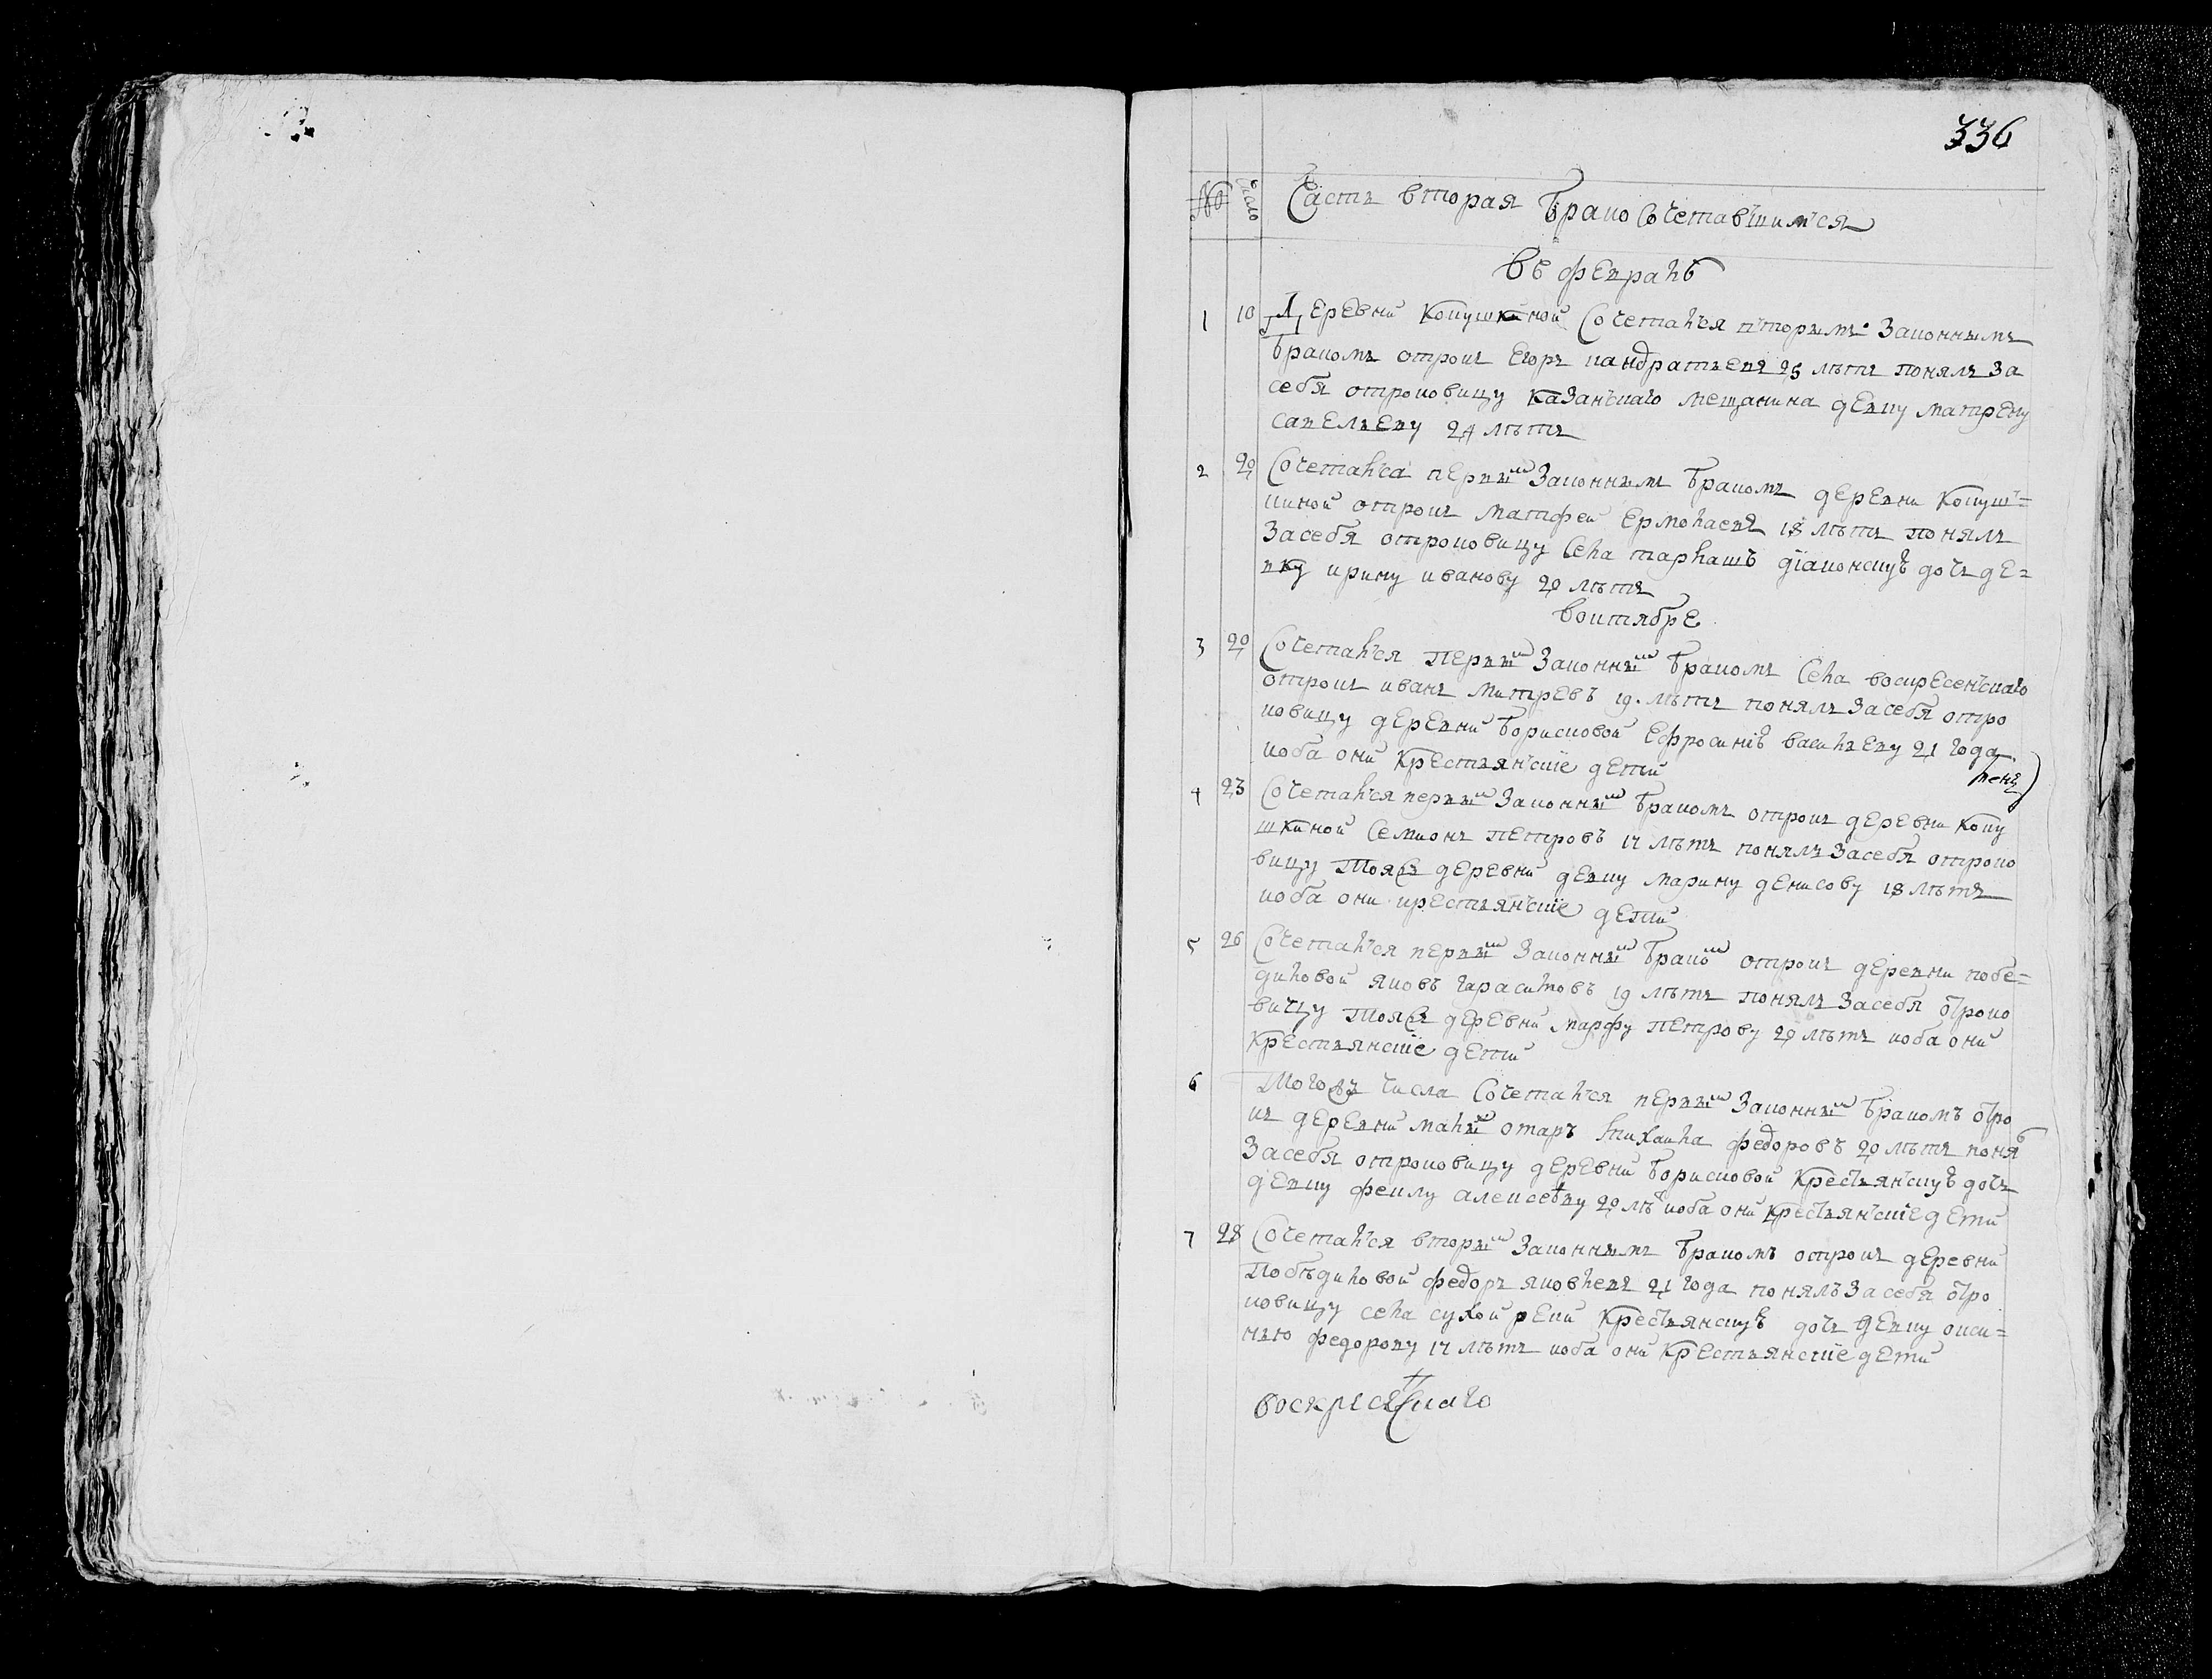 336
№ Число Часть вторая бракосочетавшимся
въ февралѣ
1 10 Деревни Кокушкиной Сочетался вторымъ законнымъ
бракомъ отрокъ Егоръ кандратьевъ 25 лѣтъ понялъ за
себя отроковицу казанскаго мещанина девку матрену
савельеву 24 лѣтъ
2 20 Сочеталса первым законнымъ бракомъ деревни Кокуш=
киной отрокъ матфей Ермолаевъ 18 лѣтъ понялъ
засебя отроковицу Села тарлашъ дїаконскуѣ дочь де=
вку ирину иванову 20 лѣтъ
воктябре
3 20 Сочетался первым законным бракомъ Села воскресенскаго
отрокъ иванъ митревъ 19. лѣтъ понялъ засебя отро
ковицу деревни борисковой Ефросинїѣ васильеву 21 года
иоба они крестьянскїе дети
4 23 Сочетался первым законным бракомъ отрокъ деревни коку
шкиной Семионъ петровъ 17 лѣтъ понялъ засебя отроко
вицу тояжъ деревни девку марину денисову 18 лѣтъ
иоба они крестьянскїе дети
5 26 Сочетался первым законным браком отрокъ деревни побе=
диловой яковъ гарасимовъ 19 лѣтъ понялъ засебя отроко
вицу тояжъ деревни марфу петрову 20 лѣтъ иоба они
крестьянскїе дети
6 Тогожъ числа Сочетался первым законным бракомъ отро
къ деревни малый отаръ михаила федоровъ 20 лѣтъ понялъ
засебя отроковицу деревни борисковой крестьянскуѣ дочь
девку феклу алексеѣву 20 лѣтъ иоба они крестьянскїе дети
7 28 Сочетался вторым законнымъ бракомъ отрокъ деревни
побѣдиловой федоръ яковлевъ 21 года понялъ засебя отро
ковицу села сухой реки крестьянскуѣ дочь девку окси=
нью федорову 17 лѣтъ иоба они крестьянскїе дети